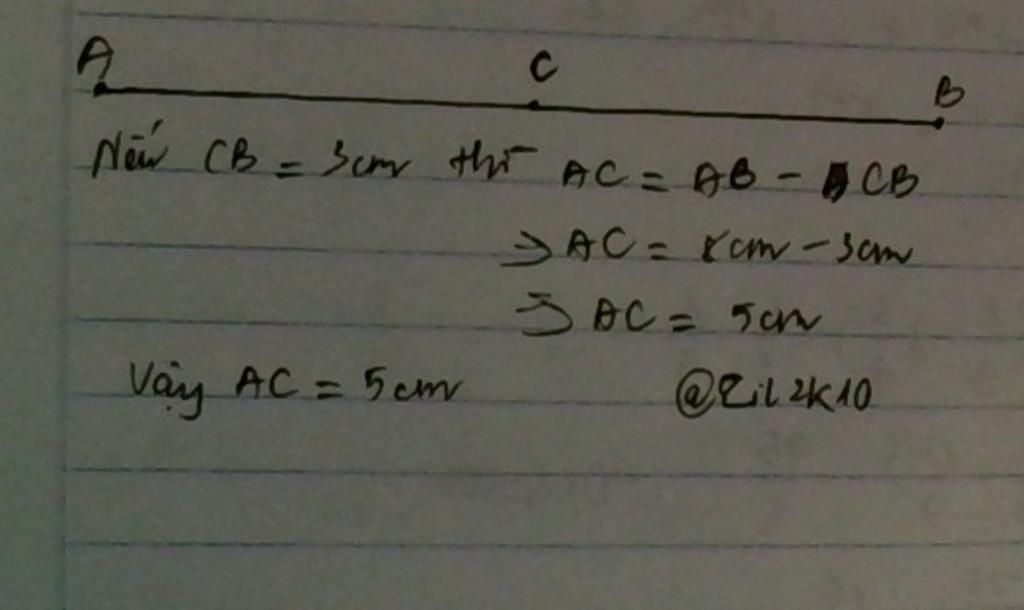 A C B
Nếu CB = 3cm thì AC = AB - CB
=> AC = 8cm - 3cm
=> AC = 5cm
Vậy AC = 5cm @Zil2K10